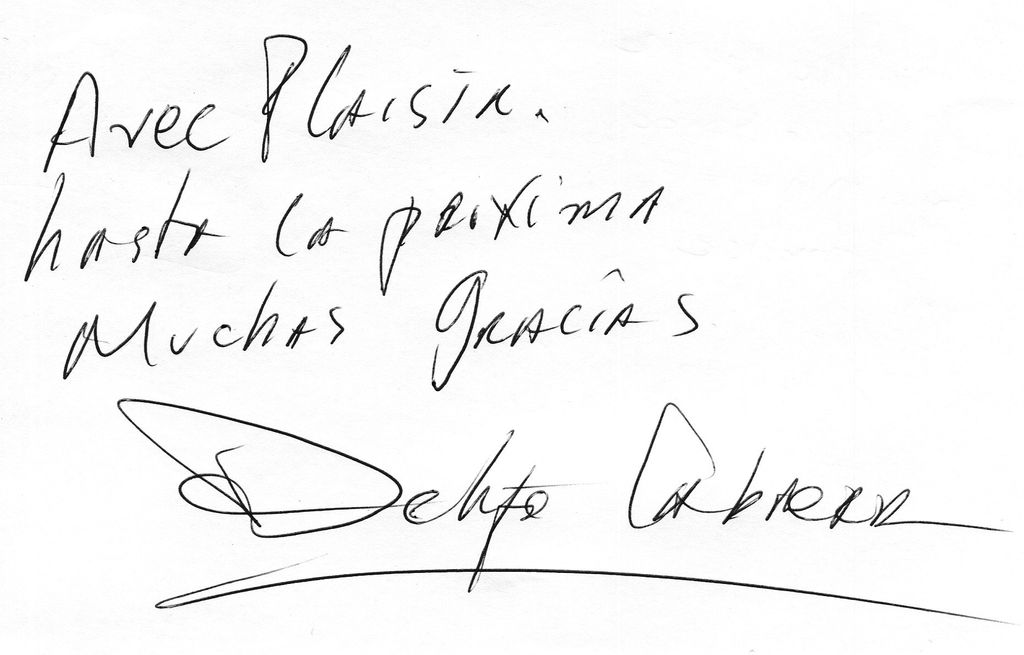 Avec Plaisir.
hasta la próxima
Muchas gracias
Delfo Cabrera